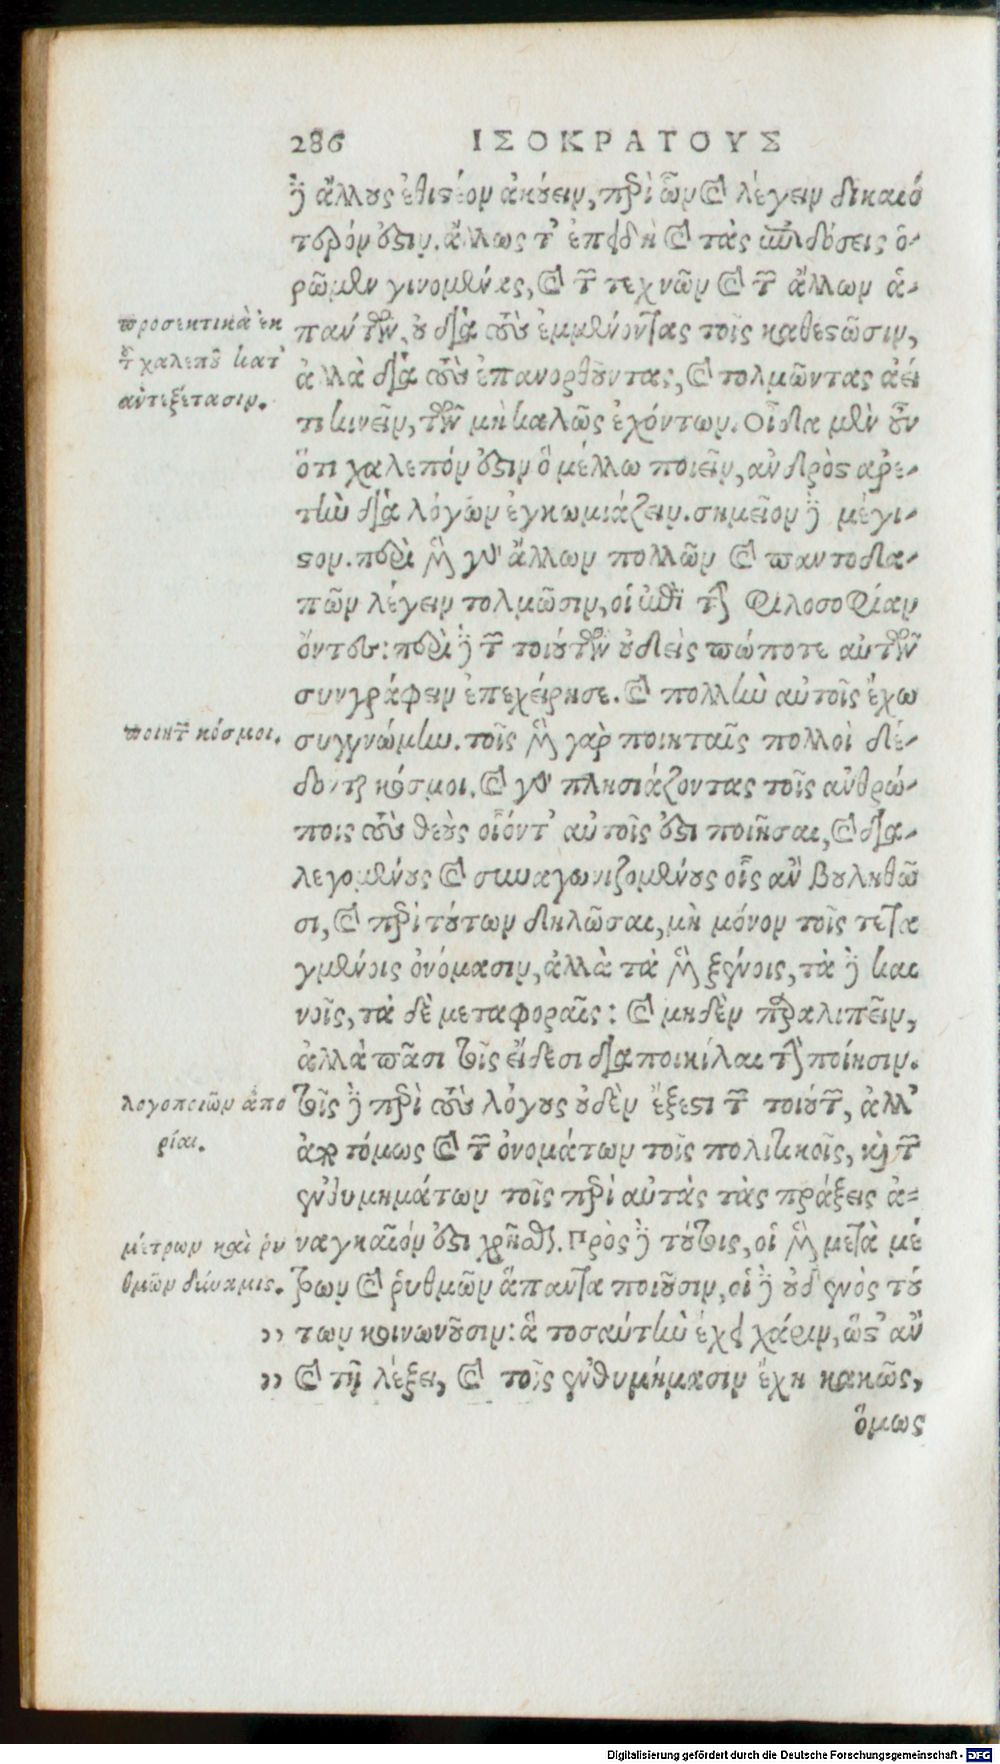 286 ΙΣΟΚΡΑΤΟΥΣ
δ᾽ ἄλλους ἐθιστέον ἀκούειν, περὶ ὧν καὶ λέγειν δικαιό
τερόν ἐστιν. ἄλλως τ᾽ ἐπειδὴ καὶ τὰς ἐπιδόσεις ὁ-
ρῶμεν γινομένας, καὶ τῶν τεχνῶν καὶ τῶν ἄλλων ἁ-
προσεκτικὰ ἐκ
πάντων, οὐ διὰ τοὺς ἐμμένοντας τοῖς καθεστῶσιν,
τοῦ χαλεποῦ κατ᾽
ἀλλὰ διὰ τοὺς ἐπανορθοῦντας, καὶ τολμῶντας ἀεί
ἀντεξέτασιν.
τι κινεῖν, τῶν μὴ καλῶς ἐχόντων. Οἶδα μὲν οὖν
ὅτι χαλεπόν ἐστιν ὃ μέλλω ποιεῖν, ἀνδρὸς ἀρε-
τὴν διὰ λόγων ἐγκωμιάζειν. σημεῖον δὲ μέγι-
στον. περὶ μὲν γὰρ ἄλλων πολλῶν καὶ παντοδα-
πῶν λέγειν τολμῶσιν, οἱ περὶ τὴν φιλοσοφίαν
ὄντες: περὶ δὲ τῶν τοιούτων οὐδεὶς πώποτε αὐτῶν
συνγράφειν ἐπεχείρησε. καὶ πολλὴν αὐτοῖς ἔχω
ποιητῶν κόσμοι.
συγγνώμην. τοῖς μὲν γὰρ ποιηταῖς πολλοὶ δέ-
δονται κόσμοι. καὶ γὰρ πλησιάζοντας τοῖς ἀνθρώ-
ποις τοὺς θεοὺς οἷόντ᾽ αὐτοῖς ἐστι ποιῆσαι, καὶ δια-
λεγομένους καὶ συναγωνιζομένους οἷς ἂν βουληθῶ
σι, καὶ περὶ τούτων δηλῶσαι, μὴ μόνον τοῖς τετα
γμένοις ὀνόμασιν, ἀλλὰ τὰ μὲν ξένοις, τὰ δὲ και
νοῖς, τὰ δὲ μεταφοραῖς: καὶ μηδὲν παραλιπεῖν,
ἀλλὰ πᾶσι τοῖς εἴδεσι διαποικίλαι τὴν ποίησιν.
λογοποιῶν ἀπο
ρίαι.
τοῖς δὲ περὶ τοὺς λόγους οὐδὲν ἔξεστι τῶν τοιούτων, ἀλλ᾽
ἀποτόμως καὶ τῶν ὀνομάτων τοῖς πολιτικοῖς, καὶ τῶν
ἐνθυμημάτων τοῖς περὶ αὐτὰς τὰς πράξεις ἀ-
μέτρων καὶ ῥυ
ναγκαῖόν ἐστι χρῆσθαι. Πρὸς δὲ τούτοις, οἱ μὲν μετὰ μέ
θμῶν δύναμις.
τρων καὶ ῥυθμῶν ἅπαντα ποιοῦσιν, οἱ δὲ οὐδενὸς τού
,, των κοινωνοῦσιν: ἃ τοσαύτην ἔχει χάριν, ὥστ᾽ ἂν
,, καὶ τῇ λέξει, καὶ τοῖς ἐνθυμήμασιν ἔχῃ κακῶς,
ὅμως
Digitalisierung gefördert durch die Deutsche Forschungsgemeinschaft - DFG